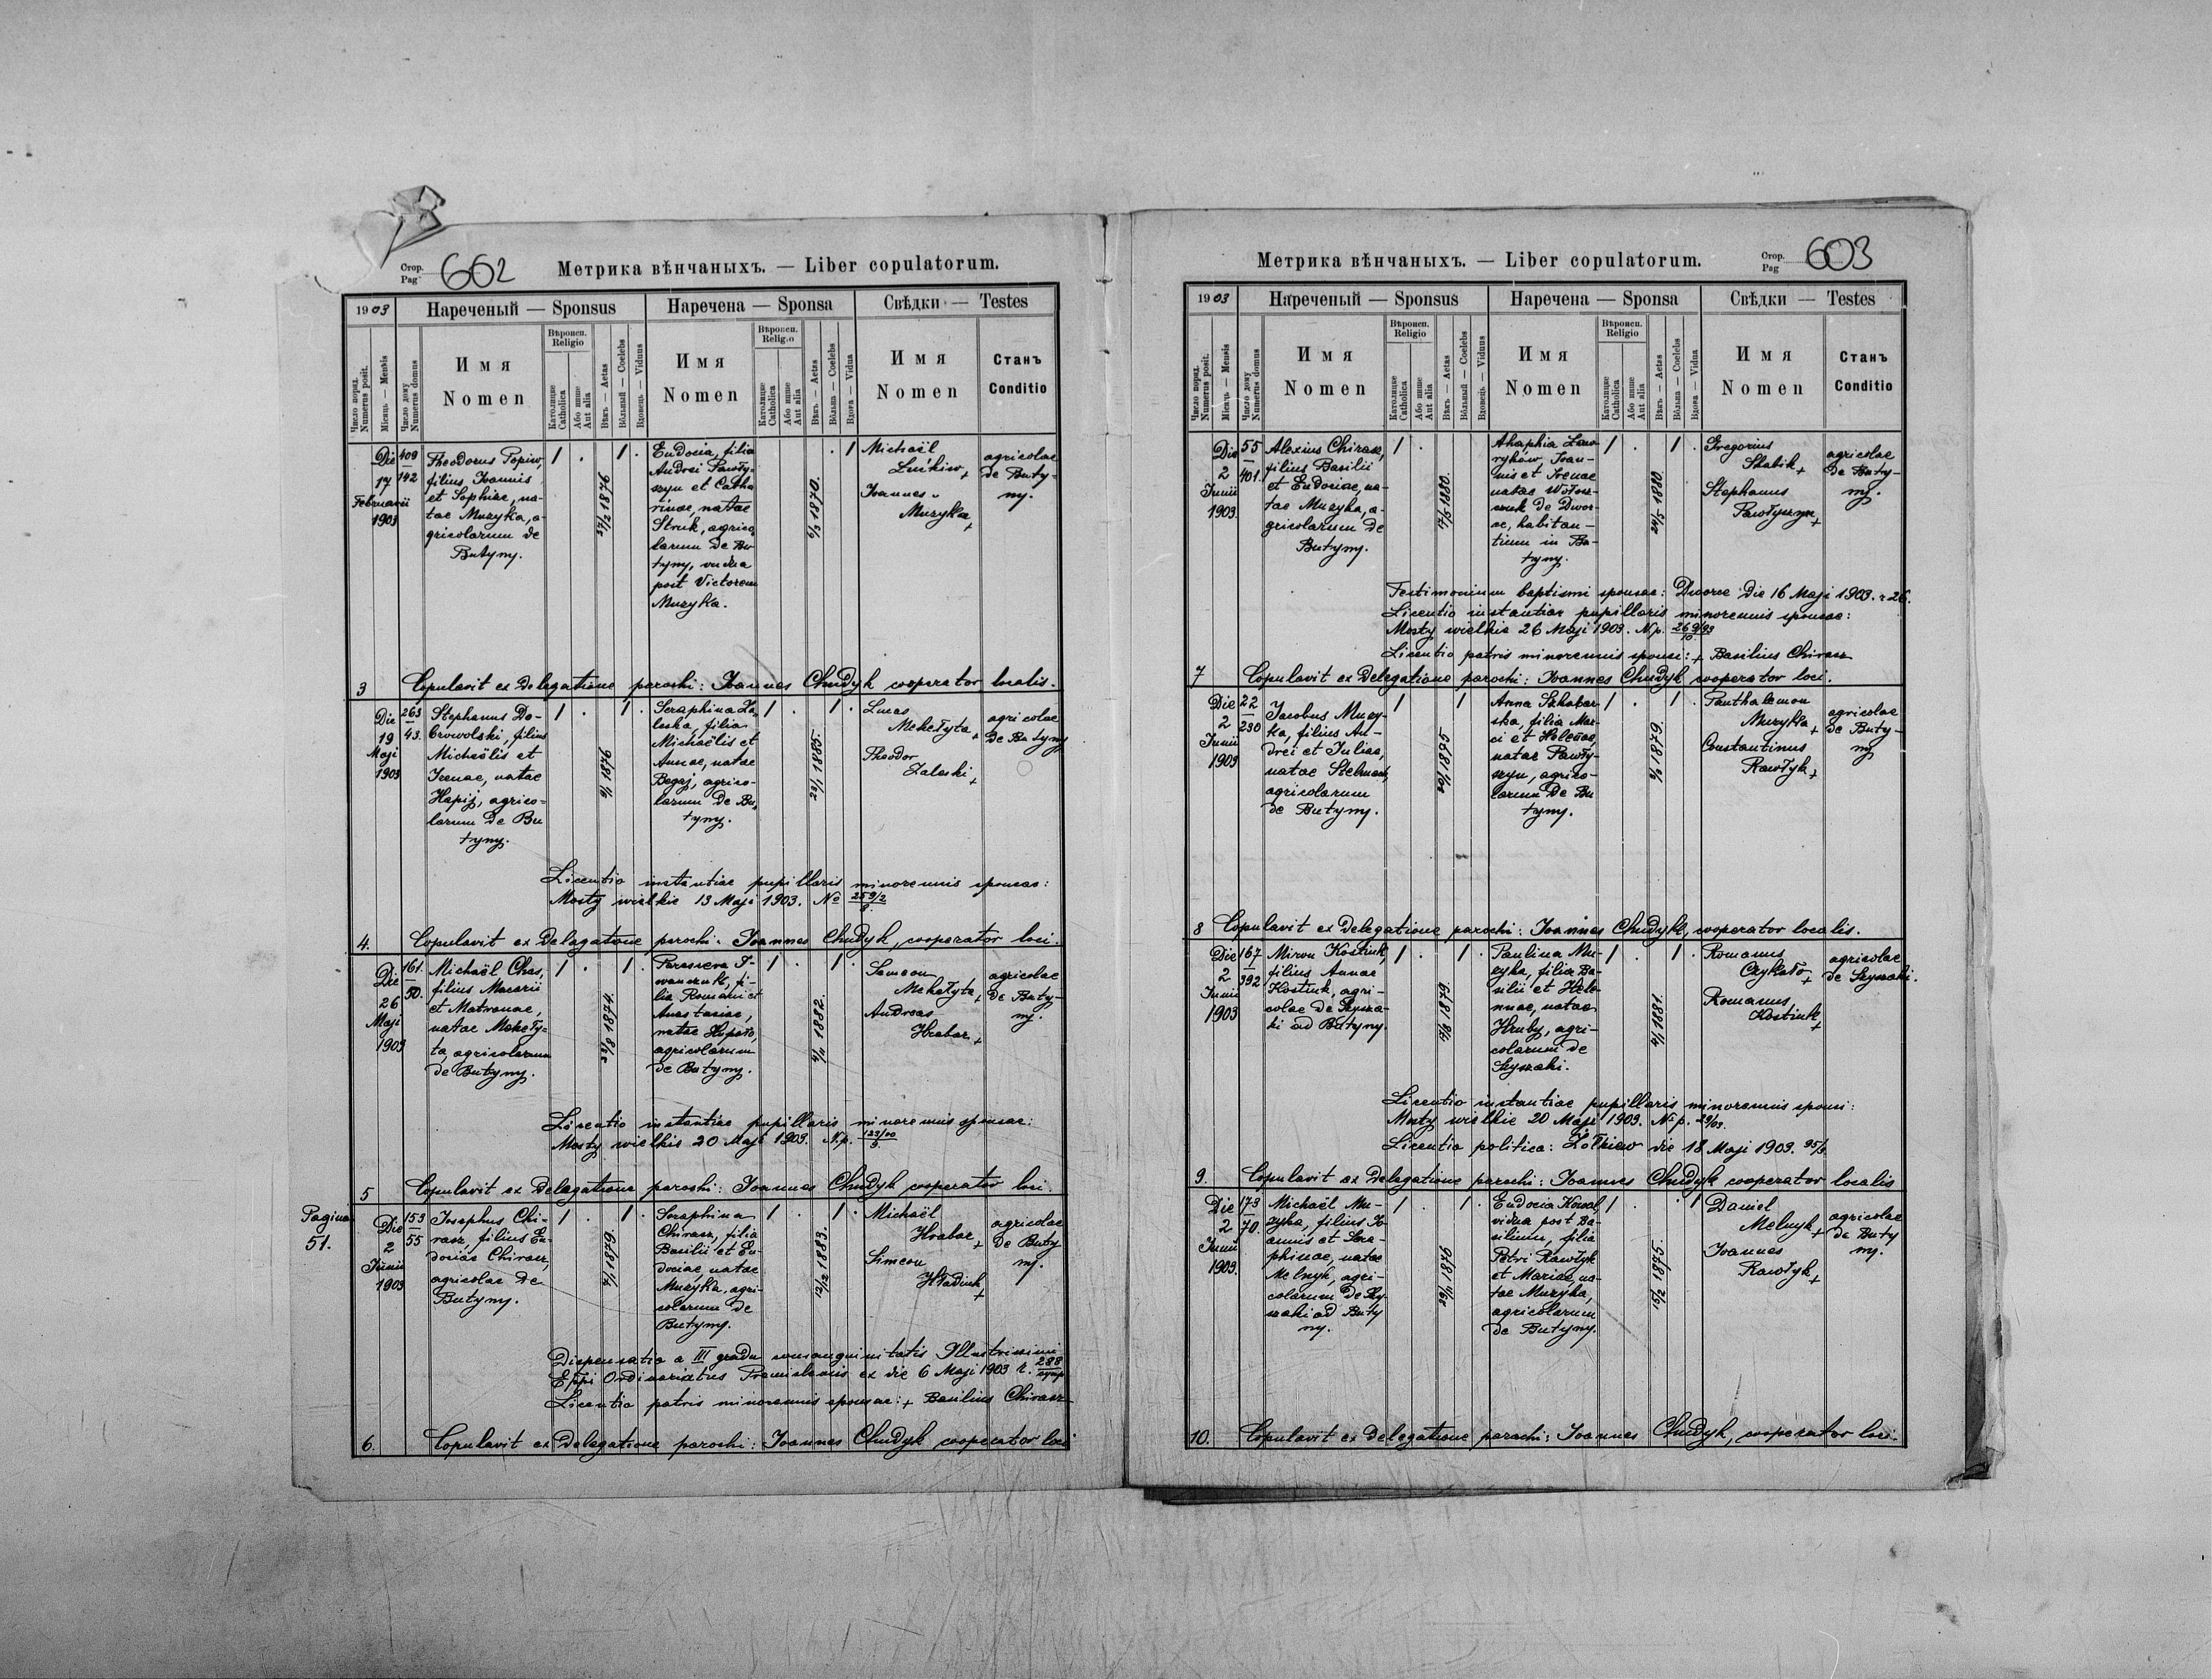 Стор.
Pag 602
Метрика вѣнчаныхъ. — Liber copulatorum.
1903
Нареченый — Sponsus
Наречена — Sponsa
Свѣдки — Testes
Число поряд.
Numerus posit.
Місяць — Mensis
Число дому
Numerus domus
Имя
Nomen
Вѣроисп.
Religio
Католицке
Catholica
Або инше
Aut alia
Вѣкъ — Aetas
Вôльный — Coelebs
Вдовець — Viduus
Имя
Nomen
Вѣроисп.
Religio
Католицке
Catholica
Або инше
Aut alia
Вѣкъ — Aetas
Вôльна — Coelebs
Вдова — Vidua
Имя
Nomen
Станъ
Conditio
Die
17
Februarii
1903
409
142
Theodorus Popiw,
filius Ioannis
et Sophiae, na-
tae Muzyka, a-
gricolarum de
Butyny.
1 . 1 .
27/2 1876
Eudocia, filia
Andrei Pawły-
szyn et Catha
rinae, natae
Struk, agrico
larum de Bu
tyny, vidua
post Victorem
Muzyka.
. 1
6/3 1870.
Michaël
Lućkiw +
Ioannes
Muzyka +
agricolae
de Buty-
ny.
3 Copulavit ex delegatione parochi: Ioannes Chudyk cooperator localis.
Die
19
Maji
1903
263
43.
Stephanus Do-
browolski, filius
Michaëlis et
Irenae, natae
Hapij, agrico-
larum de Bu
tyny.
1 . 1 .
9/1 1876
Seraphina Za
leska, filia
Michaëlis et
Annae, natae
Begaj, agrico-
larum de Bu
tyny.
1 . 1 .
23/1 1885.
Lucas
Mekełyta +
Theodor
Zaleski +
agricolae
de Butyny
Licentia instantiae pupillaris minorennis sponsae:
Mosty wielkie 13 Maji 1903. No 259/2
8.
4. Copulavit ex delegatione parochi: Ioannes Chudyk, cooperator loci.
Die
26
Maji
1903
161.
50.
Michaël Chas,
filius Macarii
et Matronae,
natae Mekeły-
ta, agricolarum
de Butyny.
1 . 1 .
23/8 1874.
Parasceva I-
wanczuk, fi-
lia Romani et
Anastasiae,
natae
agricolarum
de Butyny.
1 . 1 .
4/11 1882.
Simeon
Mekełyta +
Andreas
Hrabar +
agricolae
de Buty-
ny.
Licentia instantiae pupillaris minorennis sponsae:
Mosty wielkie 20 Maji 1903. N.p. 123/00
5.
5 Copulavit ex delegatione parochi: Ioannes Chudyk cooperator loci.
Pagina
51.
Die
2
Junii
1903
153
55
Josephus Chi-
rasz, filius Eu-
dociae Chirasz,
agricolae de
Butyny.
1 . 1 .
1879.
Seraphina
Chirasz, filia
Basilii et Eu-
dociae, natae
Muzyka, agri-
colarum de
Butyny.
1 . 1 .
12/12 1883.
Michaël
Hrabar +
Simeon
Hładiuk
+
agricolae
de Buty
ny.
Dispensatio a III gradu consanguinitatis Illustrissimi
Eppi Ordinariatus Premisliensis ex die 6 Maji 1903 288
Licentia patris minorennis sponsae: + Basilius Chirasz
6. Copulavit ex delegatione parochi: Ioannes Chudyk cooperator loci
Метрика вѣнчаныхъ. — Liber copulatorum.
Стор.
Pag 603
1903
Нареченый — Sponsus
Наречена — Sponsa
Свѣдки — Testes
Число поряд.
Numerus posit.
Місяць — Mensis
Число дому
Numerus domus
Имя
Nomen
Вѣроисп.
Religio
Католицке
Catholica
Або инше
Aut alia
Вѣкъ — Aetas
Вôльный — Coelebs
Вдовець — Viduus
Имя
Nomen
Вѣроисп.
Religio
Католицке
Catholica
Або инше
Aut alia
Вѣкъ — Aetas
Вôльна — Coelebs
Вдова — Vidua
Имя
Nomen
Станъ
Conditio
Die
2
Junii
1903
55
401.
Alexius Chirasz,
filius Basilii
et Eudociae, na-
tae Muzyka, a-
gricolarum de
Butyny.
1 .
17/5 1880.
Ahaphia Law
ryków, Ioan-
nis et Irenae
natae Wołosz-
czuk de Dwor-
ce, habitan-
tium in Bu-
tyny.
1 . 1 .
24/5 1880.
Gregorius
Słabik +
Stephanus
Pawłyszyn +
agricolae
de Buty-
ny.
Testimonium baptismi sponsae: Dworce die 16 Maji 1903. n 26.
Licentia instantiae pupillaris minorennis sponsae:
Mosty wielkie 26 Maji 1903. N.p. 269/93
10
Licentia patris minorennis sponsi: + Basilius Chirasz
7 Copulavit ex delegatione parochi: Ioannes Chudyk cooperator loci.
Die
2
Junii
1903
22
230
Jacobus Muzy-
ka, filius An-
drei et Juliae,
natae Stelmach,
agricolarum
de Butyny.
1 1
Anna Szkabar-
ska, filia Mar-
ci et Helenae
natae Pawły-
szyn, agrico-
larum de Bu
tyny.
1 . 1 .
1879.
Panthalemon
Muzyka +
Constantinus
Rawłyk +
agricolae
de Buty-
ny
8 Copulavit ex delegatione parochi: Ioannes Chudyk, cooperator localis.
Die
2
Junii
1903
167
392
Miron Kostiuk,
filius Annae
Kostiuk, agri-
colae de Szysza-
ki ad Butyny.
1 . 1 .
17/8 1879.
Paulina Mu-
zyka, filia Ba-
silii et Hele-
nae, natae
Hruby, agri-
colarum de
Szyszaki.
1 . 1 .
4/1 1881.
Romanus
Czykało +
Romanus
Kostiuk +
agricolae
de Szyszaki.
Licentia instantiae pupillaris minorennis sponsi:
Mosty wielkie 20 Maji 1903. N.p. 29/03.
Licentia politica: Żółkiew die 18 Maji 1903. 95/3
9. Copulavit ex delegatione parochi: Ioannes Chudyk cooperator localis
Die
2
Junii
1903.
173
70.
Michaël Mu-
zyka, filius Jo-
annis et Sera-
phinae, natae
Melnyk, agri-
colarum de Szy-
szaki ad Buty
ny.
1 . 1 .
23/11 1876
Eudocia Kowal,
vidua post Ba-
silium, filia
Petri Rawłyk
et Mariae, na-
tae Muzyka,
agricolarum
de Butyny.
1 . . 1
15/2 1875.
Daniel
Melnyk +
Ioannes
Rawłyk +
agricolae
de Buty
ny.
10. Copulavit ex delegatione parochi: Ioannes Chudyk, cooperator loci.